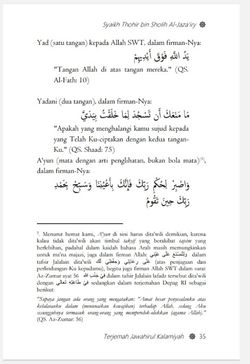 Syaikh Thohir bin Sholih Al-Jaza'iry
Yad (satu tangan) kepada Allah SWT. dalam firman-Nya:
يَدُ اللَّهِ فَوْقَ أَيْدِيهِمْ
"Tangan Allah di atas tangan mereka." (QS.
Al-Fath: 10)
Yadani (dua tangan), dalam firman-Nya:
مَا مَنَعَكَ أَنْ تَسْجُدَ لِمَا خَلَقْتُ بِيَدَيَّ
"Apakah yang menghalangi kamu sujud kepada
yang Telah Ku-ciptakan dengan kedua tangan-
Ku." (QS. Shaad: 75)
A'yun (mata dengan arti penglihatan, bukan bola mata)
dalam firman-Nya:
وَاصْبِرْ لِحُكْمِ رَبِّكَ فَإِنَّكَ بِأَعْيُنِنَا وَسَبِّحْ بِحَمْدِ
رَبِّكَ حِينَ تَقُومُ
Menurut hemat kami, A'yun di sini harus dita'wili demikian, karena
kalau tidak dita'wili akan timbul
berlebihan, padahal dalam kaidah bahasa Arab masih memungkinkan
untuk ma'na majazi, juga dalam firman Allah
tafsir Jalalain dita'wili
perlindungan Ku kepadamu), begitu juga firman Allah SWT dalam surat
Az-Zumar ayat 56 tafsir Jalalain lafadz tersebut dita'wili
dengan dan dalam terjemahan Depag RI sebagai
berikut:
"Supaya jangan ada orang yang mengatakan: "Amat besar penyesalanku atas
kelalaianku dalam (menunaikan kewajiban) terhadap Allah, sedang Aku
sesungguhnya termasuk orang-orang yang memperolok-olokkan (agama Allah)."
(QS. Az-Zumar: 56)
Terjemah Jawahirul Kalamiyah 35